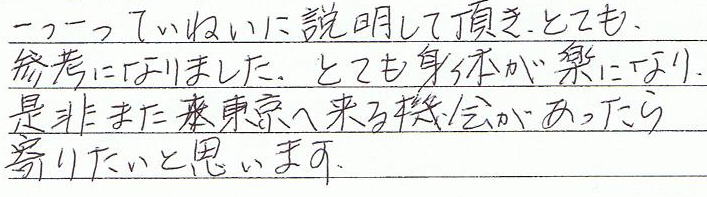 一つ一つていねいに説明して頂き、とても、
参考になりました。とても身体が楽になり、
是非また東京へ来る機会があったら
寄りたいと思います。